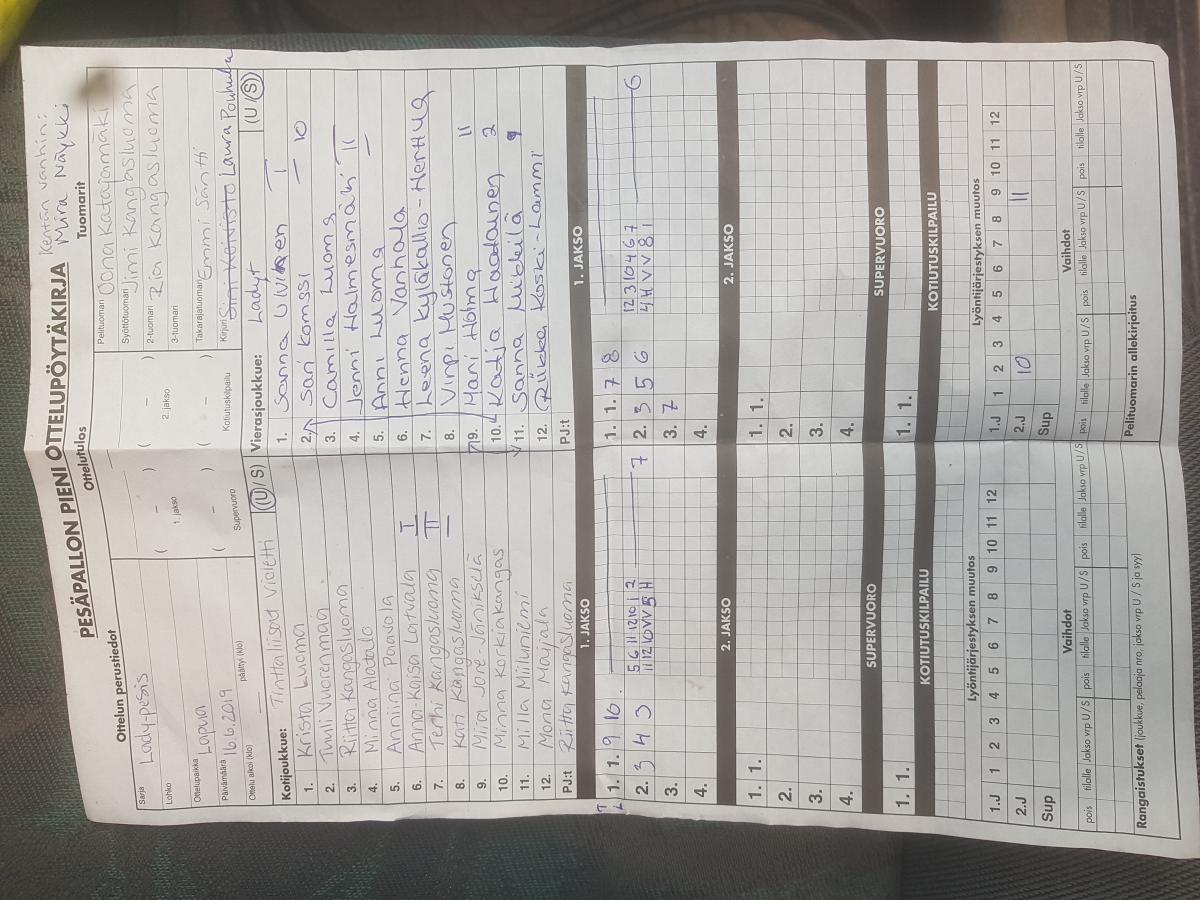 PESÄPALLON PIENI OTTELUPÖYTÄKIRJA
Kentän vanhin:
Mira Näykki
Ottelun perustiedot
Ottelutulos
Tuomarit
Sarja Lady-pesis
Lohko
Ottelupaikka Lapua
Päivämäärä 16.6.2019
Ottelu alkoi (klo) päättyi (klo)
( – ) ( – )
1. jakso 2. jakso
( – ) ( – )
Supervuoro Kotiutuskilpailu
Pelituomari Oona Katajamäki
Syöttötuomari Jimi Kangasluoma
2-tuomari Ria Kangasluoma
3-tuomari
Takarajatuomari Emmi Säntti
Kirjuri Sini Koivisto Laura Pouhula
Kotijoukkue: Tintaliisat violetti (U / S)
1. Krista Luoma
2. Tuuli Vuorenmaa
3. Riitta Kangasluoma
4. Minna Alatalo
5. Anniina Paavola
6. Anna-Kaisa Latvala I
7. Terhi Kangasluoma II
8. Kati Kangasluoma I
9. Miia Jone-Jänikselä
10. Minna Korkiakangas
11. Milla Miilumiemi
12. Mona Maijala
PJ:t Riitta Kangasluoma
Vierasjoukkue: Ladyt (U / S)
1. Sanna Ulvinen I
2. Sari Komssi I 10
3. Camilla Luoma
4. Jenni Halmesmäki II
5. Anni Luoma I
6. Henna Vanhala
7. Leena Kyläkallio-Herttua
8. Virpi Mustonen
9. Mari Holma 11
10. Katja Haadainen 2
11. Sanna Mikkilä 9
12. (Riikka Koski-Lammi)
PJ:t
1. JAKSO
1. JAKSO
T
L
1. 1. 9 10
2. 3 4 3
5 6 11 12 10 1 2
7
3.
4.
1. 1. 7 8
2. 3 5 6
12 3 10 4 6 7
4 H V V 8 1
6
3. 7
4.
2. JAKSO
2. JAKSO
1. 1.
2.
3.
4.
1. 1.
2.
3.
4.
SUPERVUORO
SUPERVUORO
1. 1.
1. 1.
KOTIUTUSKILPAILU
KOTIUTUSKILPAILU
Lyöntijärjestyksen muutos
1.J 1 2 3 4 5 6 7 8 9 10 11 12
2.J
Sup
Lyöntijärjestyksen muutos
1.J 1 2 3 4 5 6 7 8 9 10 11 12
2.J 10 11
Sup
Vaihdot
pois tilalle Jakso vrp U / S pois tilalle Jakso vrp U / S pois tilalle Jakso vrp U / S
Vaihdot
pois tilalle Jakso vrp U / S pois tilalle Jakso vrp U / S pois tilalle Jakso vrp U / S
Rangaistukset (joukkue, pelaaja nro, jakso vrp U / S ja syy)
Pelituomarin allekirjoitus